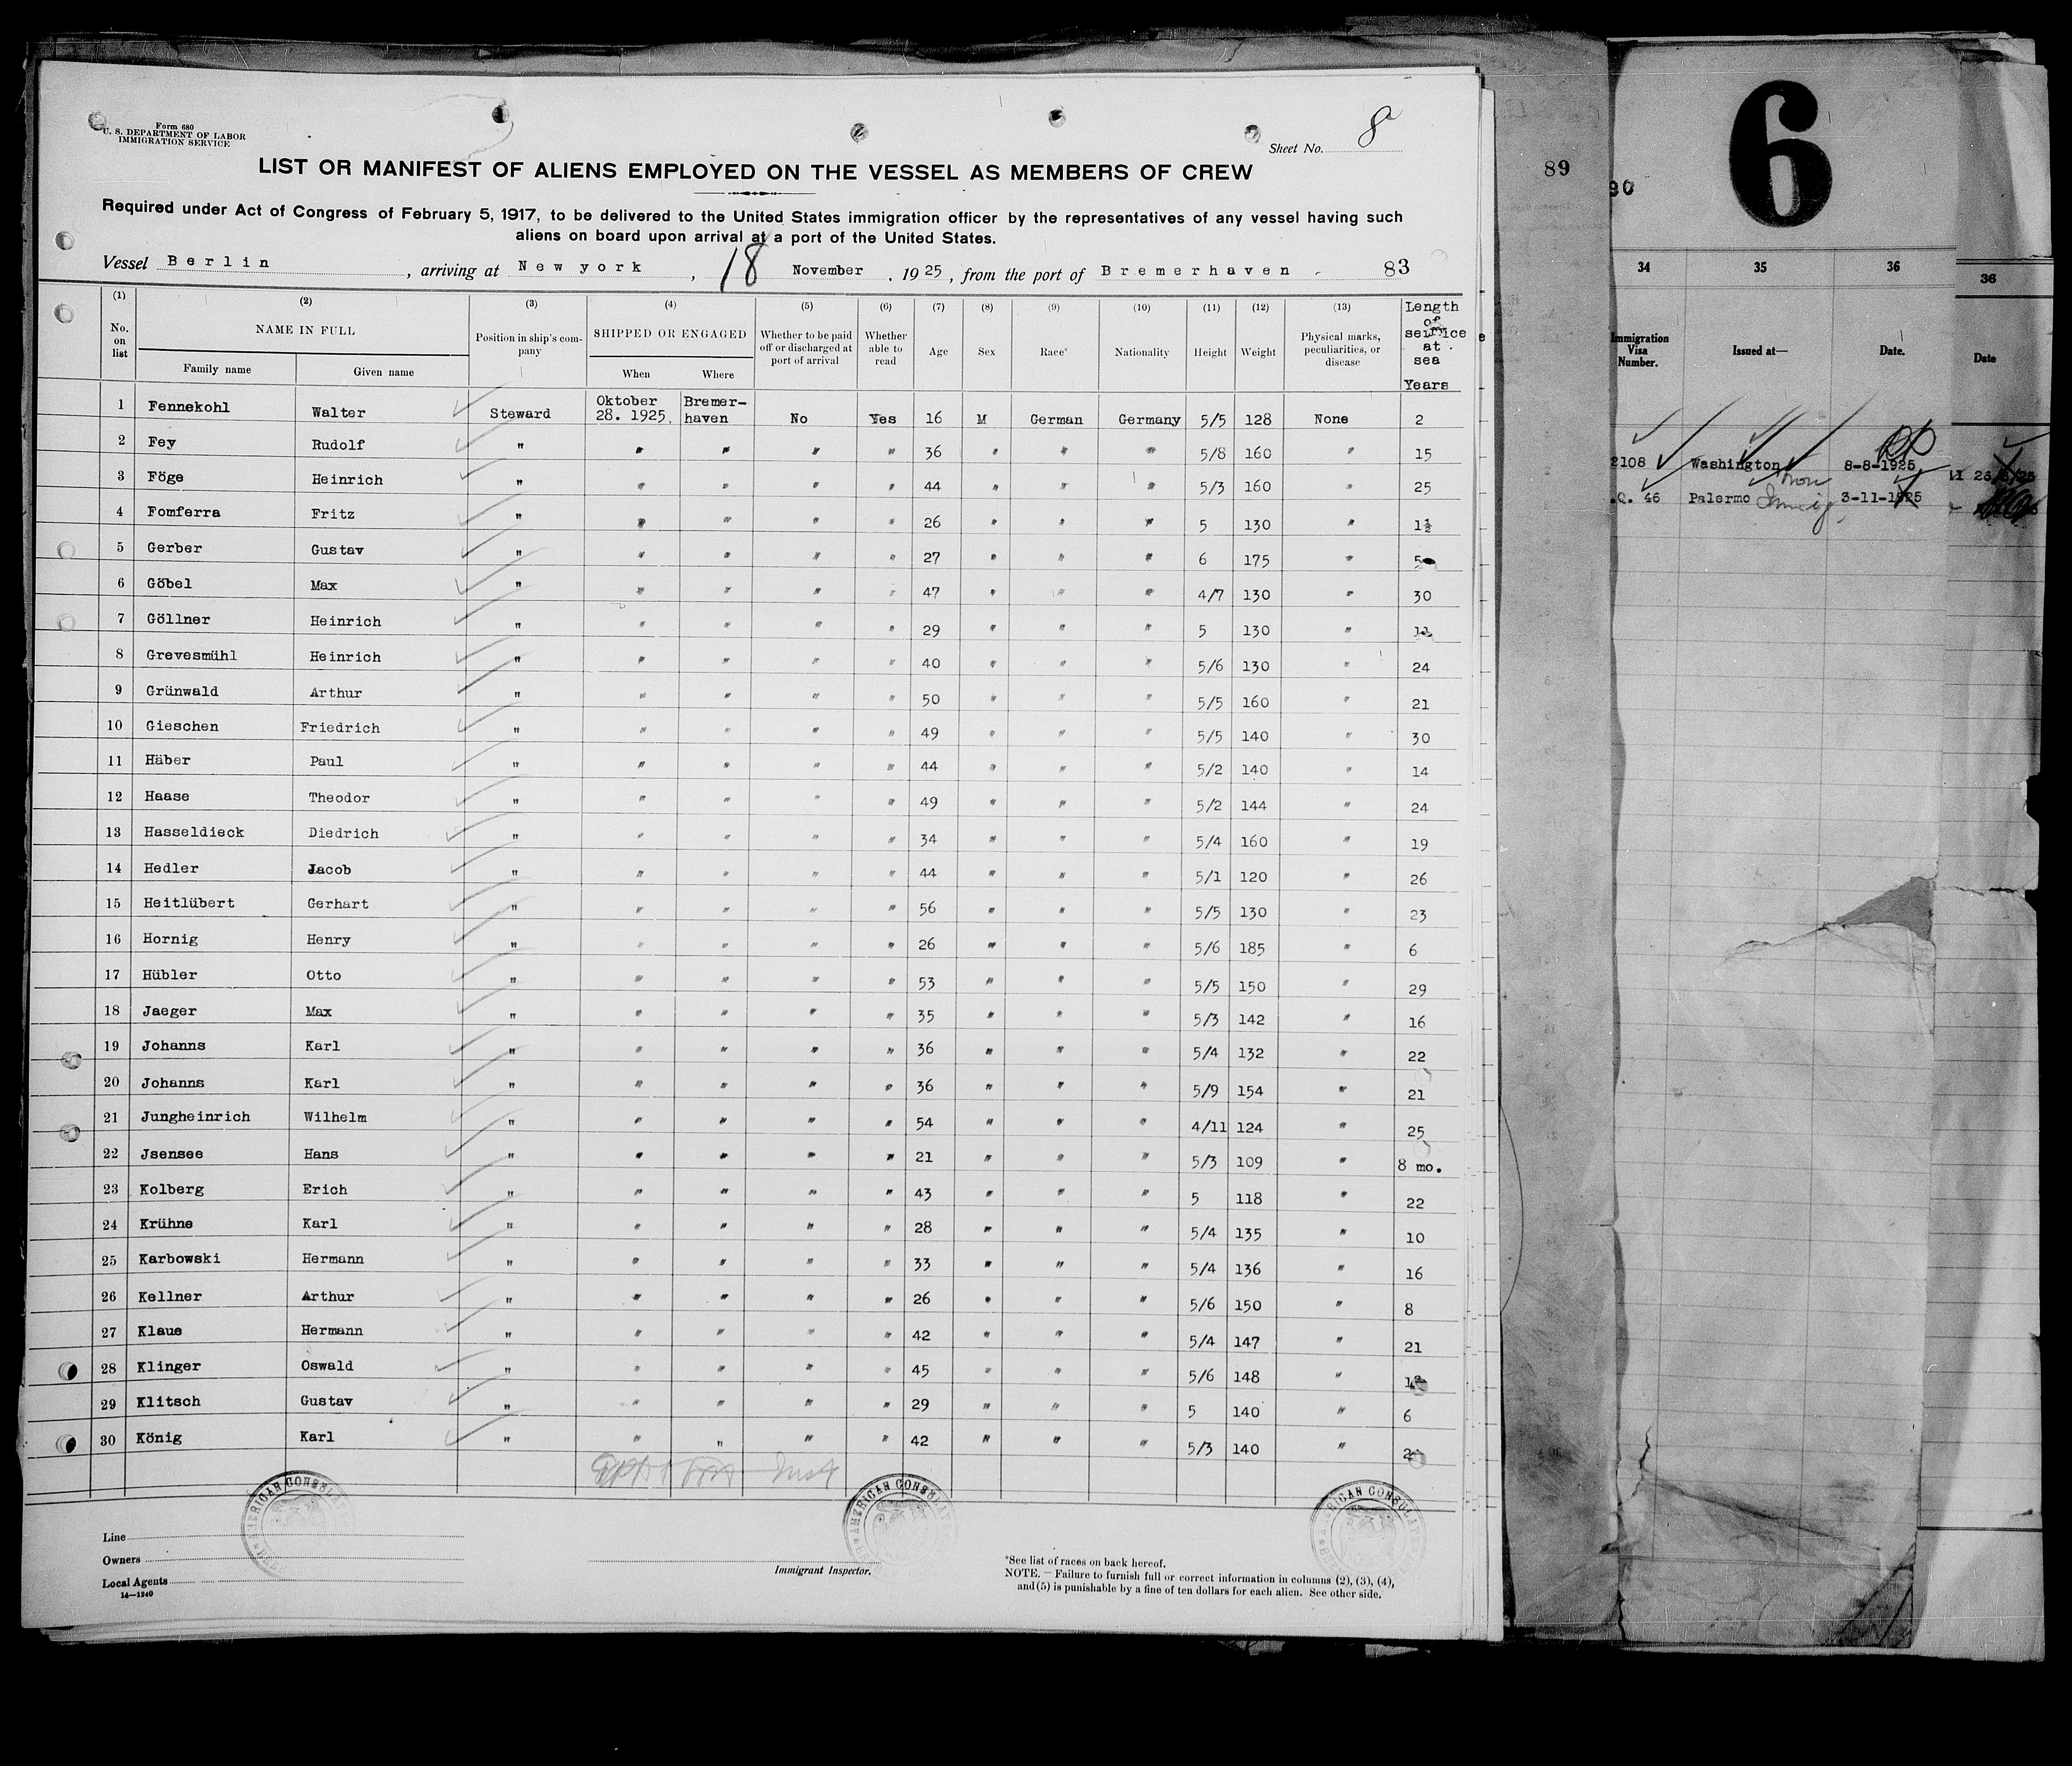 Form 680
U. S. DEPARTMENT OF LABOR
IMMIGRATION SERVICE
Sheet No. 8
LIST OR MANIFEST OF ALIENS EMPLOYED ON THE VESSEL AS MEMBERS OF CREW
Required under Act of Congress of February 5, 1917, to be delivered to the United States immigration officer by the representatives of any vessel having such
aliens on board upon arrival at a port of the United States.
Vessel Berlin, arriving at New york, 18 November, 1925, from the port of Bremerhaven 83
(1) (2) (3) (4) (5) (6) (7) (8) (9) (10) (11) (12) (13)
No. on list NAME IN FULL Family name Given name Position in ship's company SHIPPED OR ENGAGED When Where Whether to be paid off or discharged at port of arrival Whether able to read Age Sex Race* Nationality Height Weight Physical marks, peculiarities, or disease Length of service at sea Years
1 Fennekohl Walter Steward Oktober 28. 1925. Bremerhaven No Yes 16 M German Germany 5/5 128 None 2
2 Fey Rudolf " " " " " 36 " " " 5/8 160 " 15
3 Föge Heinrich " " " " " 44 " " " 5/3 160 " 25
4 Fomferra Fritz " " " " " 26 " " " 5 130 " 1½
5 Gerber Gustav " " " " " 27 " " " 6 175 " 5
6 Göbel Max " " " " " 47 " " " 4/7 130 " 30
7 Göllner Heinrich " " " " " 29 " " " 5 130 "
8 Grevesmühl Heinrich " " " " " 40 " " " 5/6 130 " 24
9 Grünwald Arthur " " " " " 50 " " " 5/5 160 " 21
10 Gieschen Friedrich " " " " " 49 " " " 5/5 140 " 30
11 Häber Paul " " " " " 44 " " " 5/2 140 " 14
12 Haase Theodor " " " " " 49 " " " 5/2 144 " 24
13 Hasseldieck Diedrich " " " " " 34 " " " 5/4 160 " 19
14 Hedler Jacob " " " " " 44 " " " 5/1 120 " 26
15 Heitlübert Gerhart " " " " " 56 " " " 5/5 130 " 23
16 Hornig Henry " " " " " 26 " " " 5/6 185 " 6
17 Hübler Otto " " " " " 53 " " " 5/5 150 " 29
18 Jaeger Max " " " " " 35 " " " 5/3 142 " 16
19 Johanns Karl " " " " " 36 " " " 5/4 132 " 22
20 Johanns Karl " " " " " 36 " " " 5/9 154 " 21
21 Jungheinrich Wilhelm " " " " " 54 " " " 4/11 124 " 25
22 Jsensee Hans " " " " " 21 " " " 5/3 109 " 8 mo.
23 Kolberg Erich " " " " " 43 " " " 5 118 " 22
24 Krühne Karl " " " " " 28 " " " 5/4 135 " 10
25 Karbowski Hermann " " " " " 33 " " " 5/4 136 " 16
26 Kellner Arthur " " " " " 26 " " " 5/6 150 " 8
27 Klaue Hermann " " " " " 42 " " " 5/4 147 " 21
28 Klinger Oswald " " " " " 45 " " " 5/6 148 "
29 Klitsch Gustav " " " " " 29 " " " 5 140 " 6
30 König Karl " " " " " 42 " " " 5/3 140 "
AMERICAN CONSULATE
AMERICAN CONSULATE
AMERICAN CONSULATE
Line
Owners
Local Agents
14—1240
Immigrant Inspector.
*See list of races on back hereof.
NOTE. — Failure to furnish full or correct information in columns (2), (3), (4),
and (5) is punishable by a fine of ten dollars for each alien. See other side.
89
90
6
34 35 36
36
Immigration Visa Number. Issued at— Date.
Date
2108 Washington 8-8-1925
.Q. 46 Palermo 3-11-1925